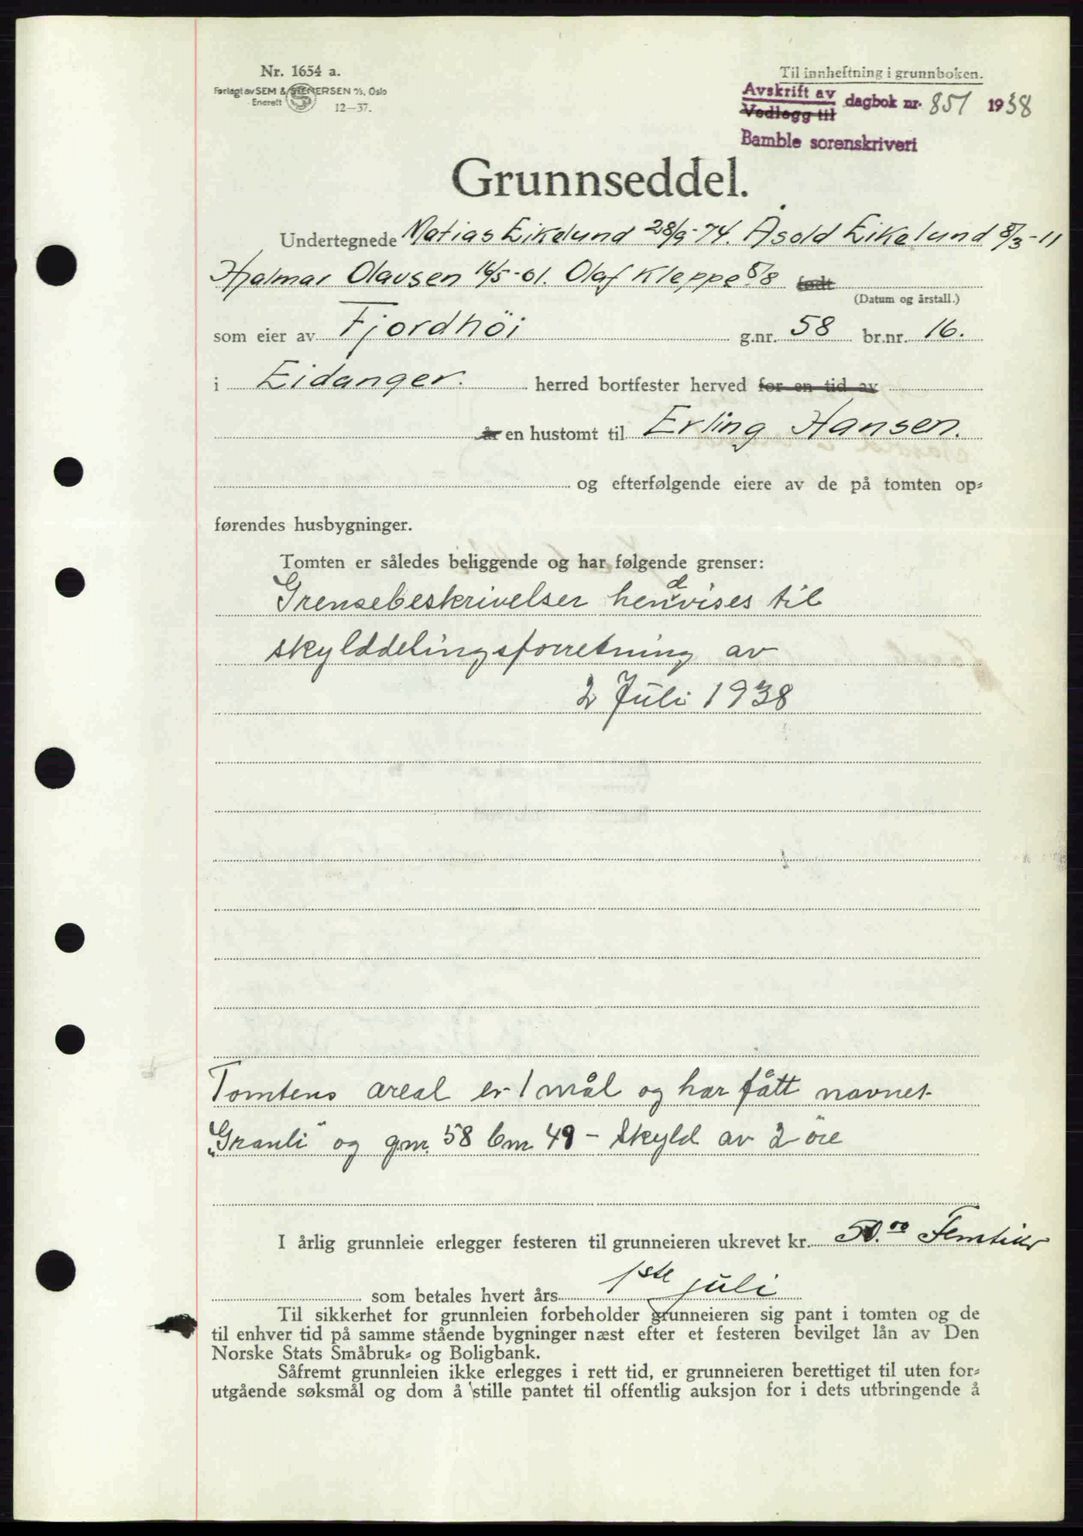 Nr. 1654 a.
Forlagt av SEM & STENERSEN A/S, Oslo
Enerett 12—37.
Til innheftning i grunnboken.
Avskrift av
Vedlegg til
dagbok nr. 851 1938
Bamble sorenskriveri
Grunnseddel.
Undertegnede Matias Eikelund 28/9-74. Åsold Eikelund 8/3-11
Hjalmar Olavsen 16/5-01. Olaf Kleppe 5/8 født
(Datum og årstall.)
som eier av Fjordhöi g.nr. 58 br.nr. 16.
i Eidanger. herred bortfester herved for en tid av
år en hustomt til Erling Hansen.
og efterfølgende eiere av de på tomten op-
førendes husbygninger.
Tomten er således beliggende og har følgende grenser:
Grensebeskrivelser hendvises til
skylddelingsforretning av
2 Juli 1938
Tomtens areal er 1 mål og har fått navnet
„Granli" og gnr. 58 bnr 49 - Skyld av 2 öre
I årlig grunnleie erlegger festeren til grunneieren ukrevet kr. 50.00 Femtikr
som betales hvert års 1ste juli
Til sikkerhet for grunnleien forbeholder grunneieren sig pant i tomten og de
til enhver tid på samme stående bygninger næst efter et festeren bevilget lån av Den
Norske Stats Småbruk- og Boligbank.
Såfremt grunnleien ikke erlegges i rett tid, er grunneieren berettiget til uten for-
utgående søksmål og dom å stille pantet til offentlig auksjon for i dets utbringende å